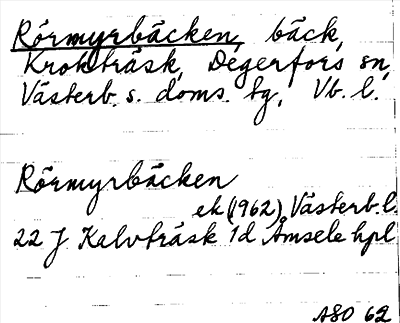 Rörmyrbäcken, bäck,
Krokträsk, Degerfors sn,
Västerb. s. doms. tg, Vb. l.
Rörmyrbäcken
ek (1962) Västerb. l.
22 J Kalvträsk 1d Åmsele hpl
ASO 62